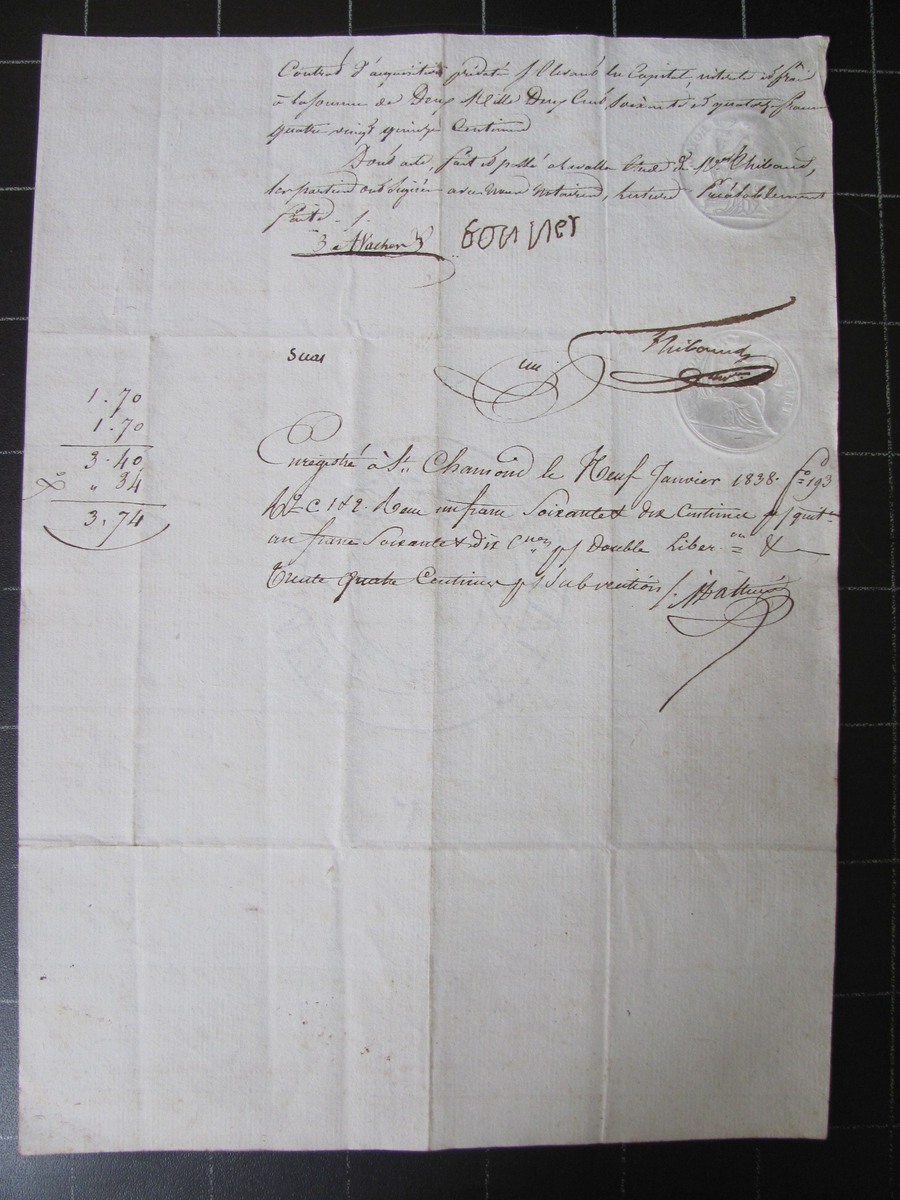 Contrat d'acquisition prédaté s'élevant en Capital, interets et frais
à la somme de Deux Mille Deux Cent Soixante et quatorze francs
quatre vingt quinze Centimes
Dont acte, fait et passé étude de Thibaud,
les parties ont signé avec nous Notaires, lecture Préalablement
faite ./.
Vachon Gonner
suas
Thibaud
1.70
1.70
3.40
" 34
3.74
Enregistré à St. Chamond le Neuf Janvier 1838. fo. 193
Ro. C. 1 & 2. Reçu un franc Soixante & dix Centimes pr quit.
un franc Soixante & dix Cmes pr Double Liber.on &
Trente quatre Centimes pr Subvention /.